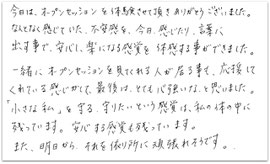 今日は、オープンセッションを体験させて頂きありがとうございました。
なんとなく感じていた、不安感を、今日、感じたり、言葉に
出す事で、安心し、楽になる感覚を体感する事ができました。
一緒にオープンセッションを見てくれる人が居る事で、応援して
くれている感じがして、最後は、とても心強いなと思いました。
「小さな私」を守る、守りたいという感覚は、私の体の中に
残っています。安心する感覚も残っています。
また、明日から、それを依り所に頑張れそうです。